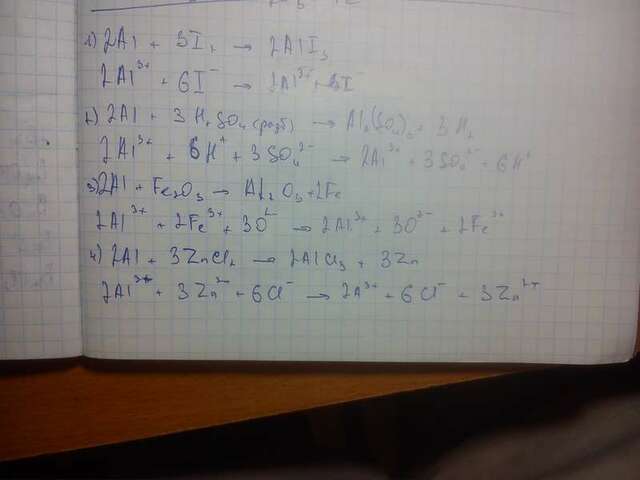 1) 2Al + 3I₂ → 2AlI₃
2Al³⁺ + 6I⁻ → 2Al³⁺ + 6I⁻
2) 2Al + 3H₂SO₄ (разб) → Al₂(SO₄)₃ + 3H₂
2Al³⁺ + 6H⁺ + 3SO₄²⁻ → 2Al³⁺ + 3SO₄²⁻ + 6H⁺
3) 2Al + Fe₂O₃ → Al₂O₃ + 2Fe
2Al³⁺ + 2Fe³⁺ + 3O²⁻ → 2Al³⁺ + 3O²⁻ + 2Fe³⁺
4) 2Al + 3ZnCl₂ → 2AlCl₃ + 3Zn
2Al³⁺ + 3Zn²⁺ + 6Cl⁻ → 2A³⁺ + 6Cl⁻ + 3Zn²⁺